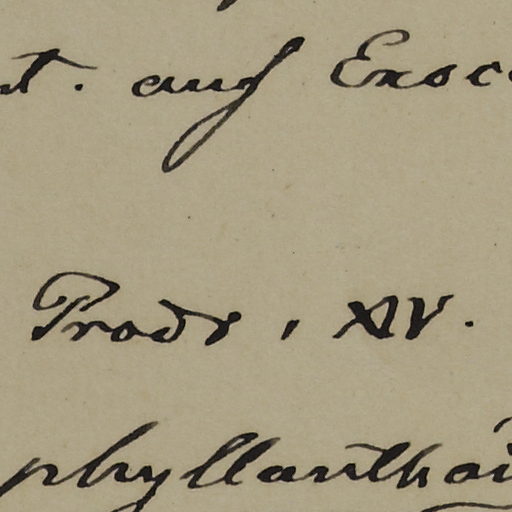 nt. auf Exoc
Prodr. XIV.
phyllanthoi